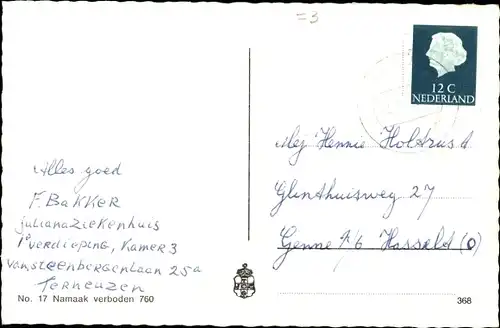 =3
12 C
NEDERLAND
Alles goed
F. BAKKER
julianaziekenhuis
1e verdieping, Kamer 3
van steenbergenlaan 25a
Terneuzen
No. 17 Namaak verboden 760
Mej Hennie Holtrust
Glinthuisweg 27
Genne a/b Hasselt (O)
368